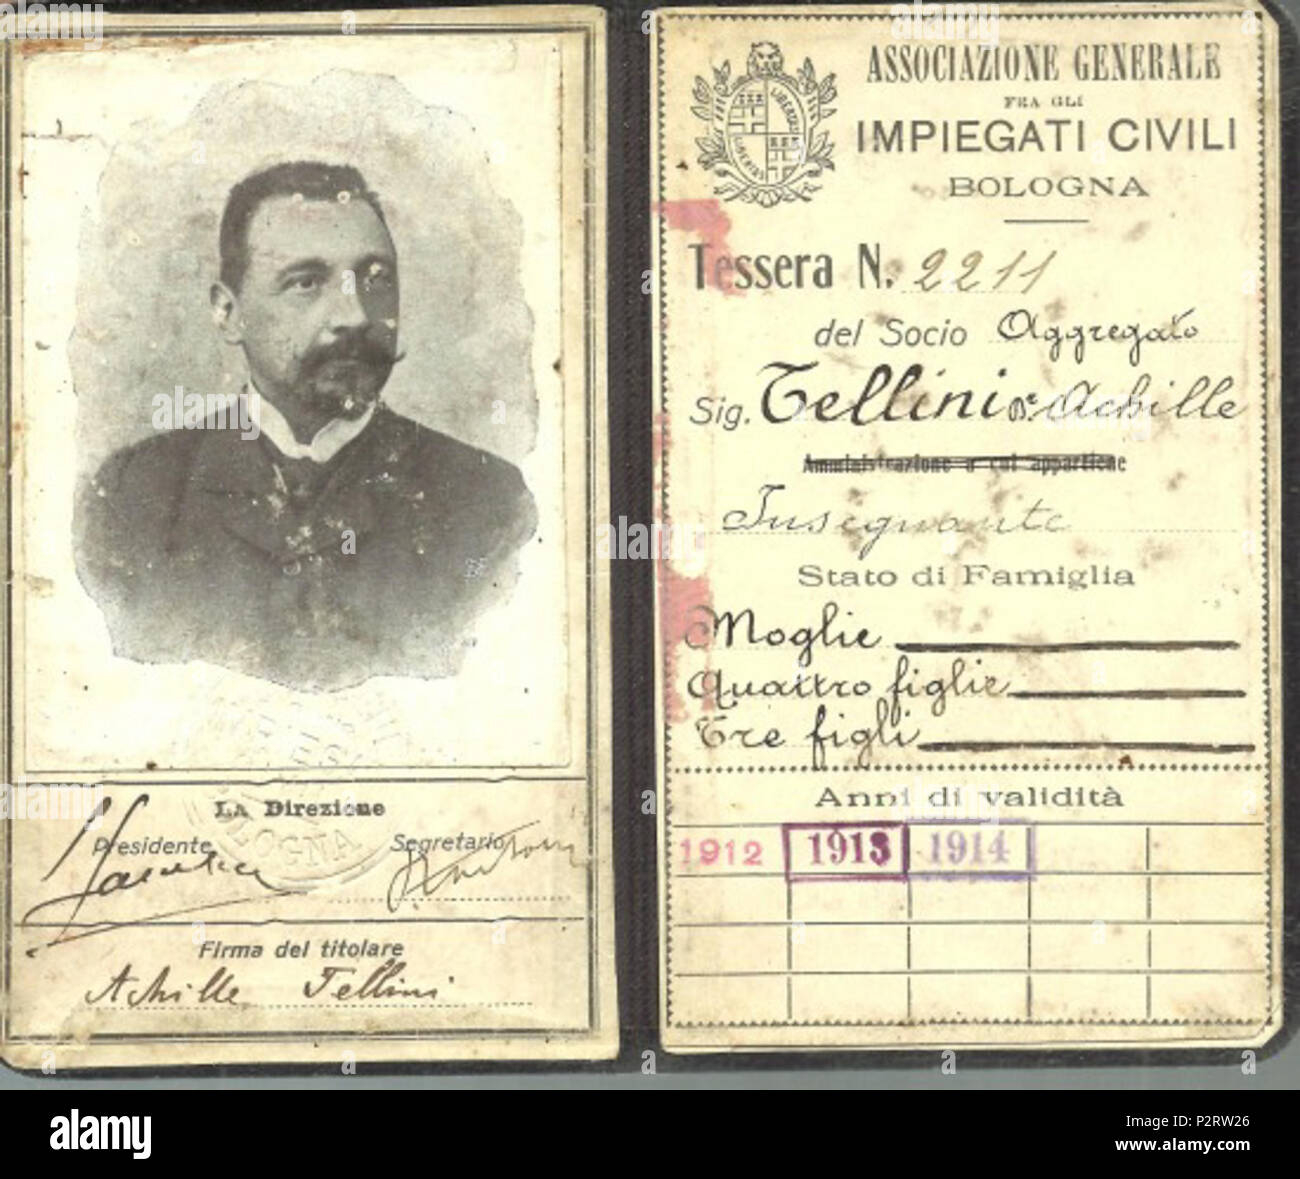 LA Direzione
Presidente Segretario
BOLOGNA
Firma del titolare
Achille Tellini
LIBERTAS
LIBERTAS
ASSOCIAZIONE GENERALE
FRA GLI
IMPIEGATI CIVILI
BOLOGNA
Tessera N. 2211
del Socio Aggregato
Sig. Tellini Dr. Achille
Amministrazione a cui appartiene
Insegnante
Stato di Famiglia
Moglie
Quattro figlie
Tre figli
Anni di validità
1912 1913 1914
alamy
Image ID: P2RTW26
www.alamy.com